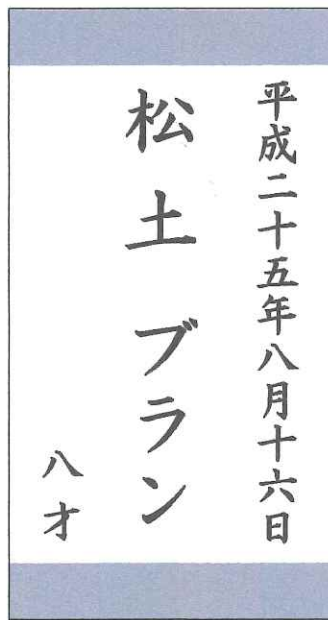 平成二十五年八月十六日
松土ブラン
八才